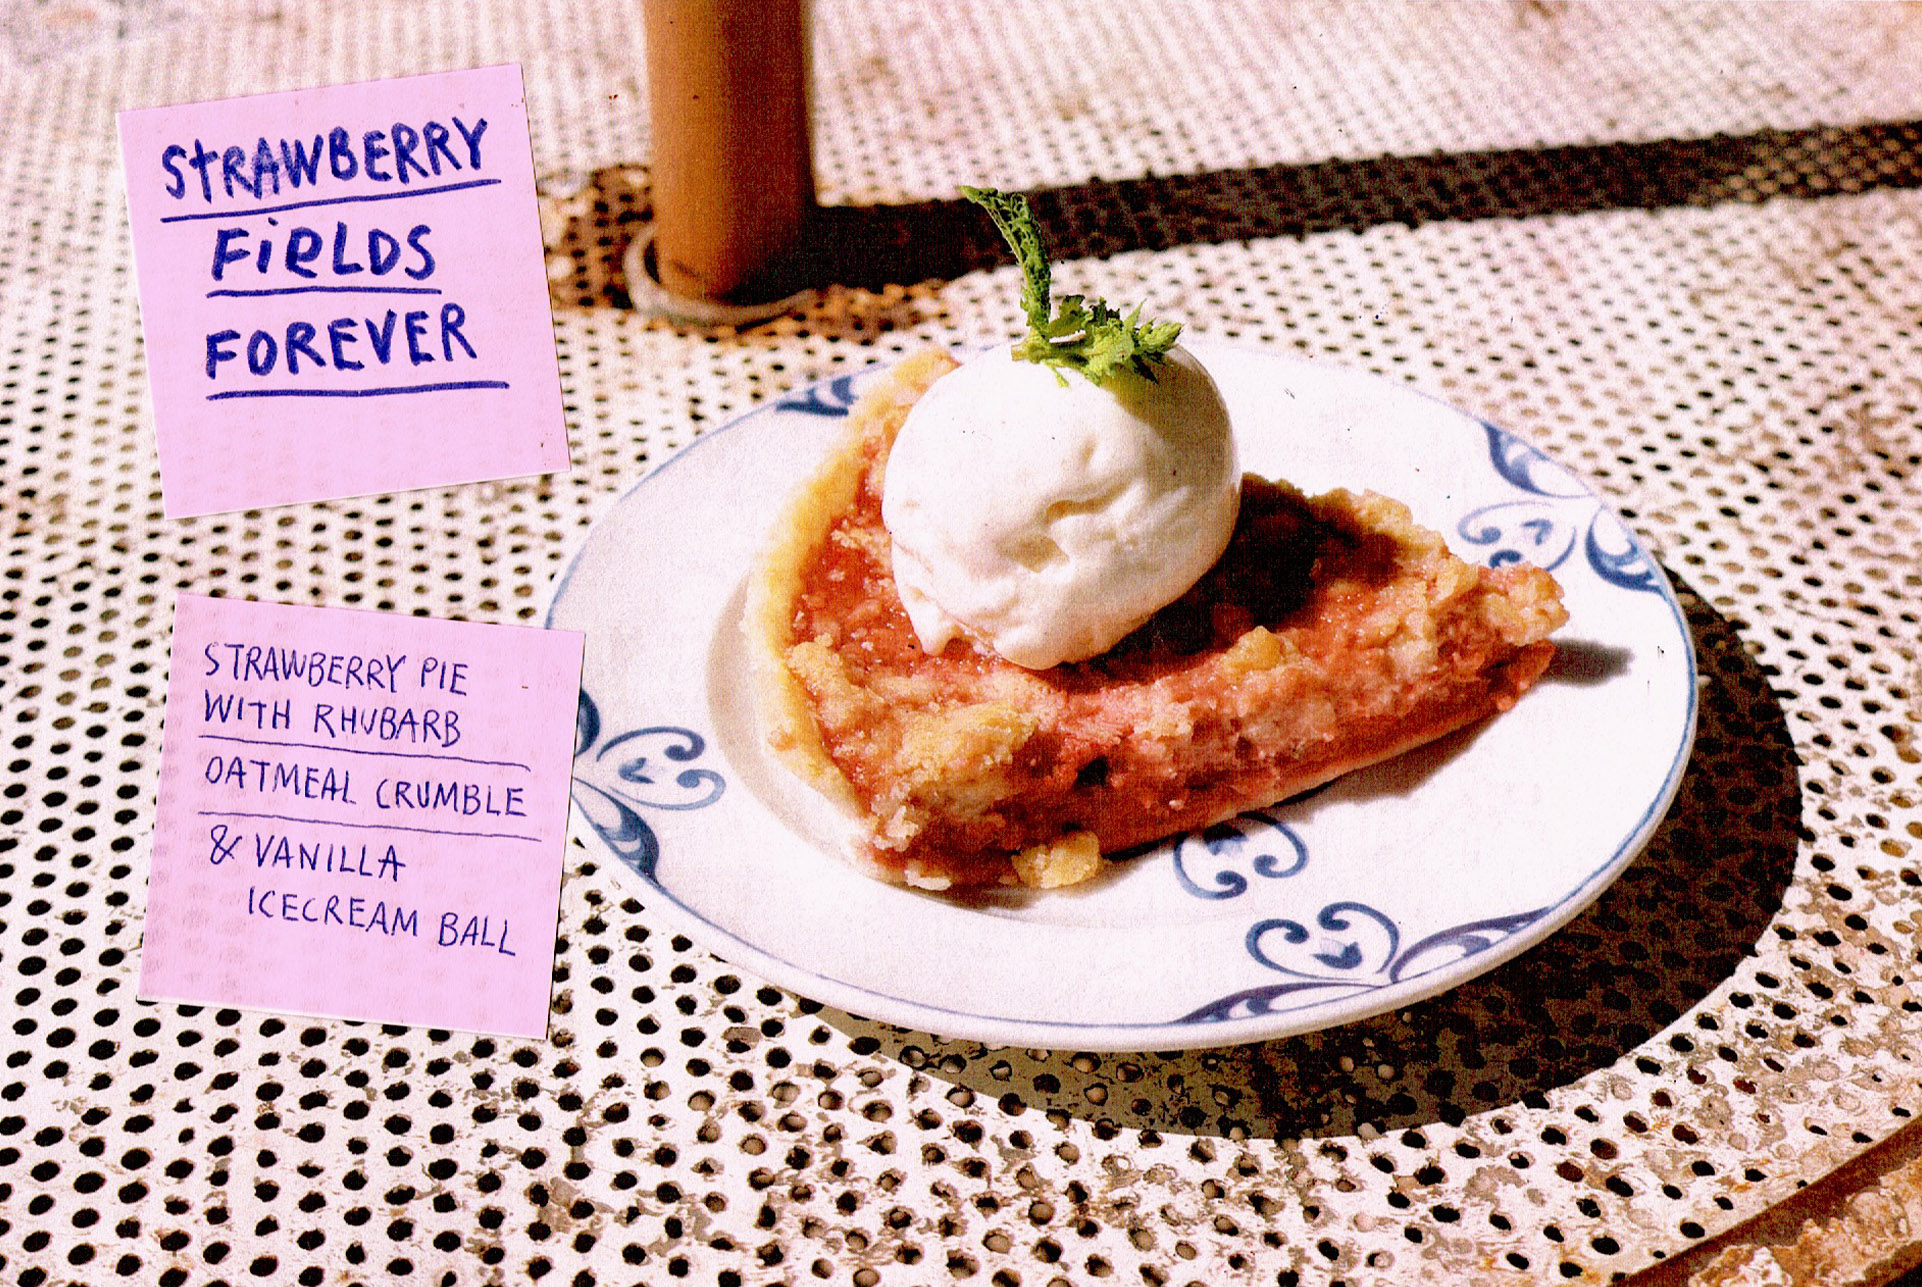 STRAWBERRY
FIELDS
FOREVER
STRAWBERRY PIE
WITH RHUBARB
OATMEAL CRUMBLE
& VANILLA
ICECREAM BALL